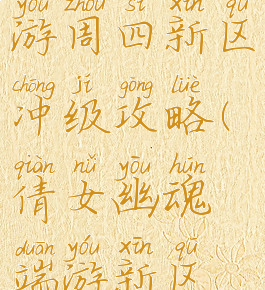 yóu zhōu sì xīn qū
游周四新区
chōng jí gōng lüè
冲级攻略(
qiàn nǚ yōu hún
倩女幽魂
duān yóu xīn qū
端游新区